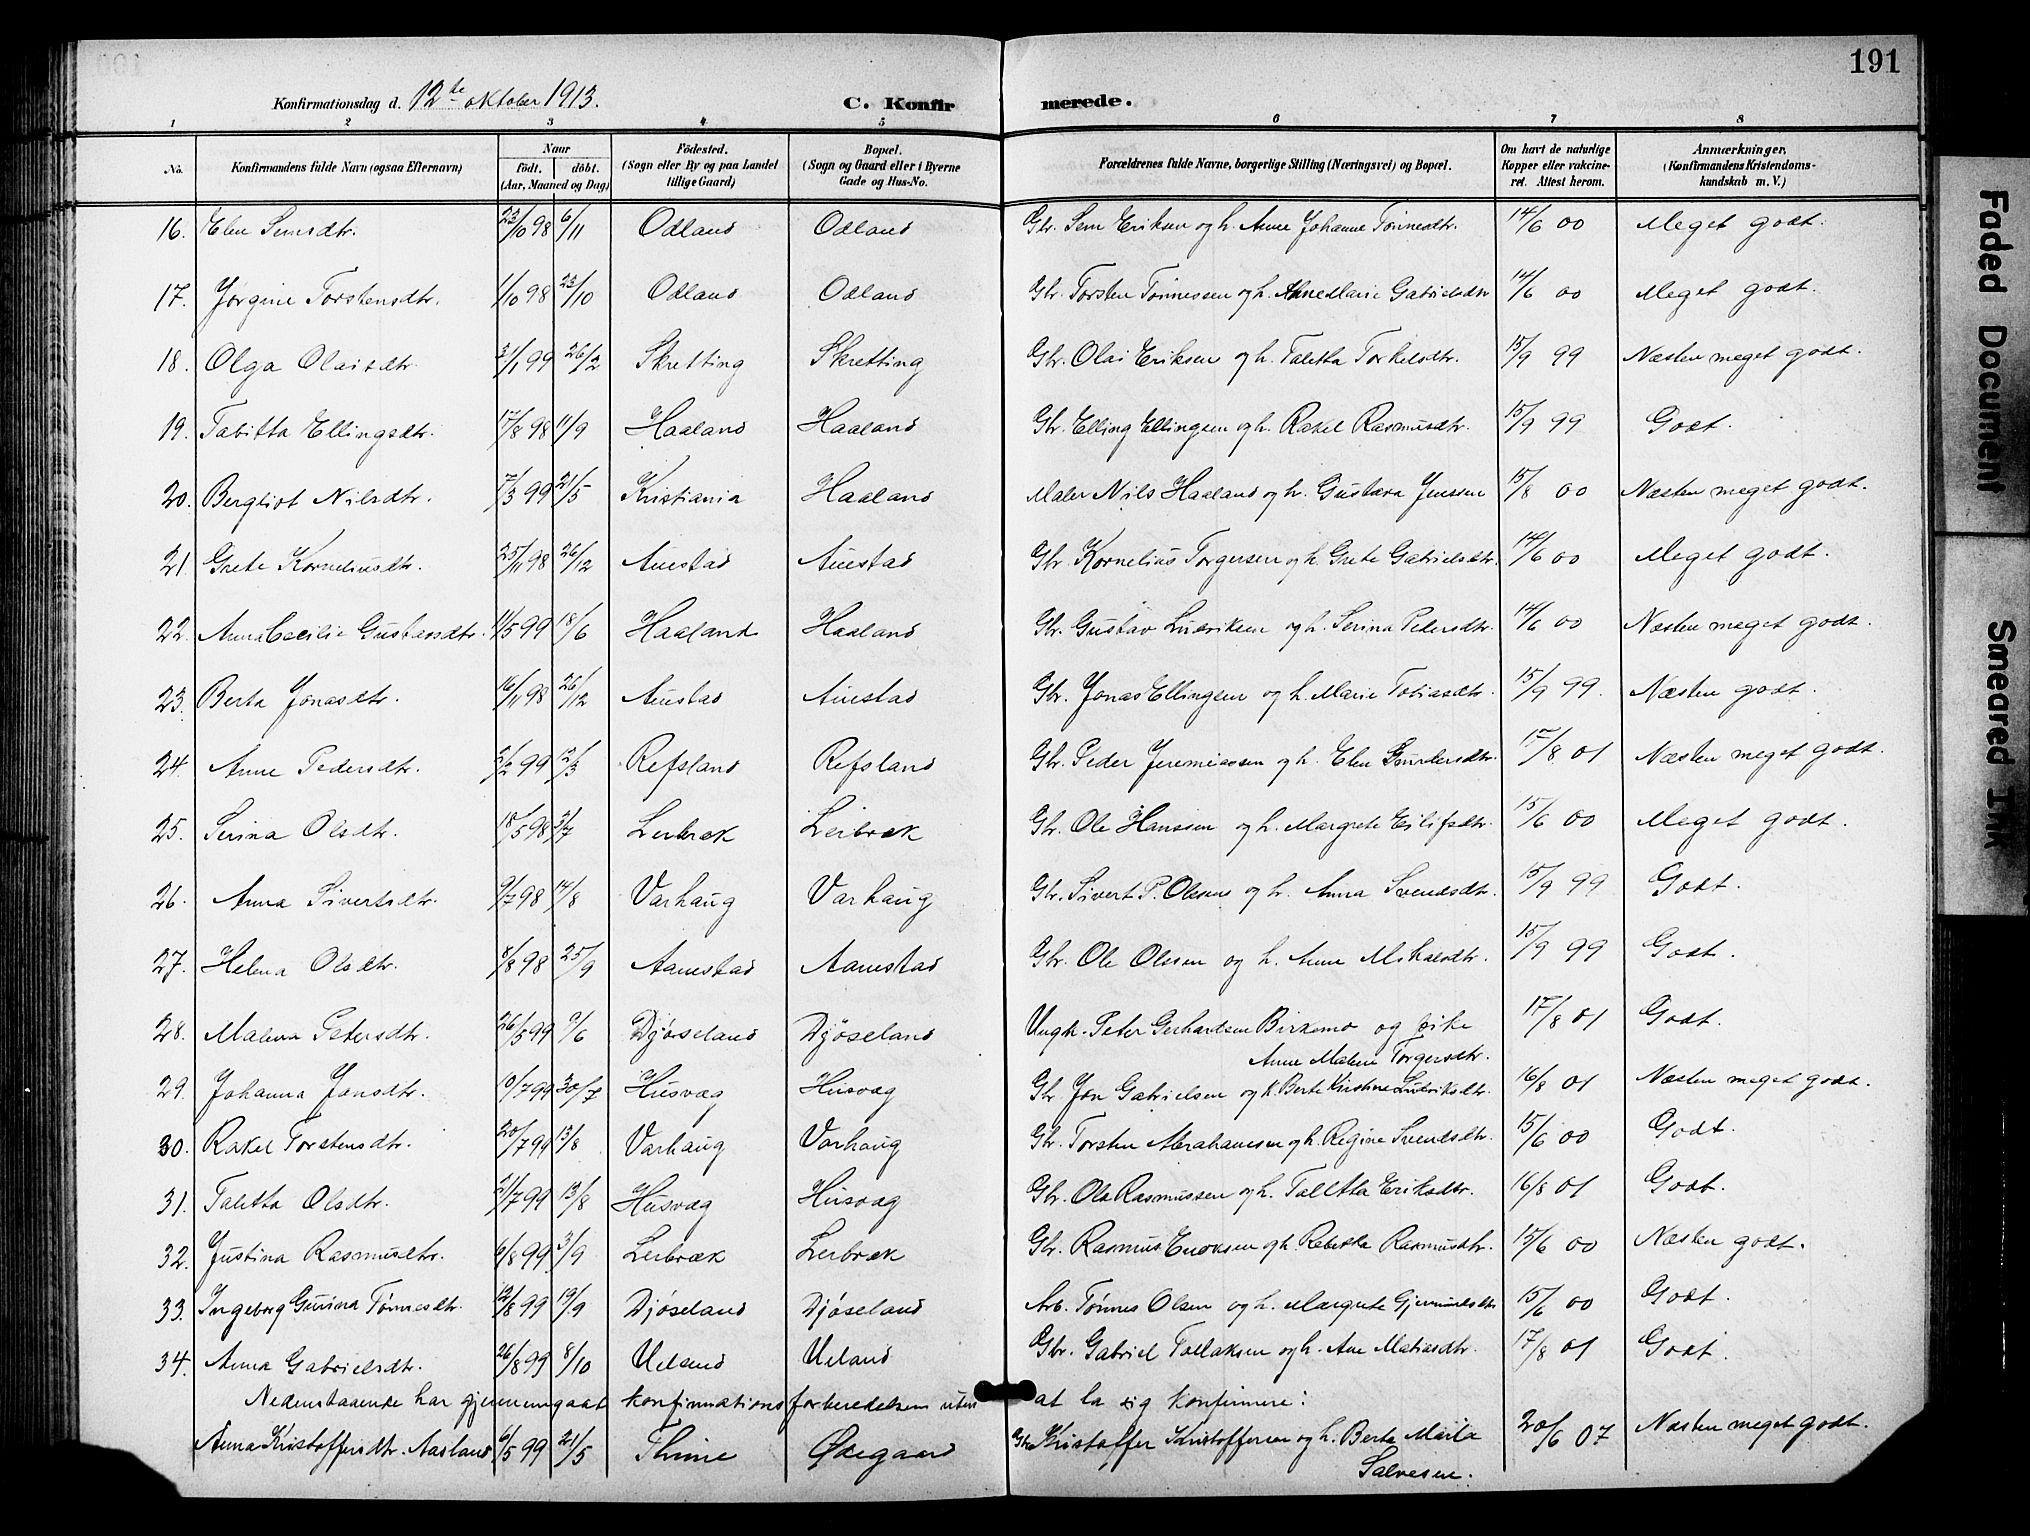 191
Konfirmationsdag d. 12te oktober 1913.
C. Konfirmerede.
1 2 3 4 5 6 7 8
No. Konfirmandens fulde Navn (ogsaa Efternavn) Naar födt. döbt. (Aar, Maaned og Dag) Födested. (Sogn eller By og paa Landet tillige Gaard) Bopæl. (Sogn og Gaard eller i Byerne Gade og Hus-No. Forældrenes fulde Navne, borgerlige Stilling (Næringsvei) og Bopæl. Om havt de naturlige Kopper eller vakcineret. Attest herom. Anmærkninger, (Konfirmandens Kristendomskundskab m. V.)
16. Elen Semsdtr. 23/10 98 6/11 Odland Odland Gbr. Sem Eriksen og h. Anne Johanne Tønnesdtr. 14/6 00 Meget godt.
17. Jørgine Torstensdtr. 1/10 98 23/10 Odland Odland Gbr. Torsten Tønnessen og h. Anne Marie Gabrielsdtr 14/6 00 Meget godt.
18. Olga Olaisdtr. 3/1 99 26/2 Skretting Skretting Gbr. Olai Eriksen og h. Taletta Torkelsdtr. 15/9 99 Næsten meget godt.
19. Tabitta Ellingsdtr. 17/8 98 11/9 Haaland Haaland Gbr. Elling Ellingsen og h. Rakel Rasmusdtr. 15/9 99 Godt.
20. Bergliot Nilsdtr. 17/3 99 21/5 Kristiania Haaland Maler Nils Haaland og h. Gustava Jenssen 15/8 00 Næsten meget godt.
21. Grete Korneliusdtr. 25/11 98 26/12 Auestad Auestad Gbr. Kornelius Torgersen og h. Grete Gabrielsdtr. 14/6 00 Meget godt.
22. Anna Cecilie Gustavsdtr. 11/5 99 18/6 Haaland Haaland Gbr. Gustav Ludviksen og h. Serina Pedersdtr. 14/6 00 Næsten meget godt.
23. Berta Jonasdtr. 16/11 98 26/12 Auestad Auestad Gbr. Jonas Ellingsen og h. Marie Tobiasdtr. 15/9 99. Næsten godt.
24. Anne Pedersdtr. 2/2 99 12/3 Refsland Refsland Gbr. Peder Jeremiassen og h. Elen Gundersdtr. 15/8 01 Næsten meget godt.
25. Serina Olsdtr. 18/5 98 3/7 Leibræk Leibræk Gbr. Ole Hanssen og h. Margrete Eilifsdtr. 15/6 00 Meget godt.
26. Anna Sivertsdtr. 9/7 98 14/8 Varhaug Varhaug Gbr. Sivert P. Olsen og h. Anna Svendsdtr. 15/9 99 Godt.
27. Helena Olsdtr. 8/8 98 25/9 Aanestad Aanestad Gbr. Ole Olsen og h. Anne Mikalsdtr. 15/9 99 Godt.
28. Malena Petersdtr. 26/5 99 9/6 Djøseland Djøseland Ungk. Peter Gerhardsen Birkemo og pike 17/8 01 Godt.
Anne Malene Torgersdtr.
29. Johanna Jonsdtr. 10/7 99 30/7 Husvæg Husvæg Gbr Jon Gabrielsen og h. Berte Kristine Ludviksdtr. 16/8 01 Næsten meget godt.
30. Rakel Torstensdtr. 20/7 99 13/8 Varhaug Varhaug Gbr. Torsten Abrahamsen og h. Regine Svendsdtr. 15/6 00 Godt.
31. Taletta Olsdtr. 21/7 99 13/8 Husvæg Husvæg Gbr. Ole Rasmussen og h. Taletta Eriksdtr. 16/8 01 Godt.
32. Justina Rasmusdtr. 6/8 99 3/9 Leibræk Leibræk Gbr. Rasmus Enoksen og h. Rebekka Rasmusdtr. 15/6 00 Næsten godt.
33. Ingeborg Gurina Tønnesdtr. 12/8 99 19/9 Djøseland Djøseland Arb. Tønnes Olsen og h. Margrete Gjermundsdtr 15/6 00 Godt.
34. Anna Gabrielsdtr. 26/8 99 8/10 Ueland Ueland Gbr. Gabriel Tollaksen og h. Ane Matiasdtr. 17/8 01 Godt.
Nedenstaaende har gjennemgaat konfirmationsforberedelsen uten at la sig konfirmere:
Anna Kristoffersdtr. Aasland 6/5 99 21/5 Thime Ødegaard Gbr Kristoffer Kristoffersen og h. Berta Maria 20/6 07 Næsten meget godt.
Salvesen.
Faded Document
Smeared Ink